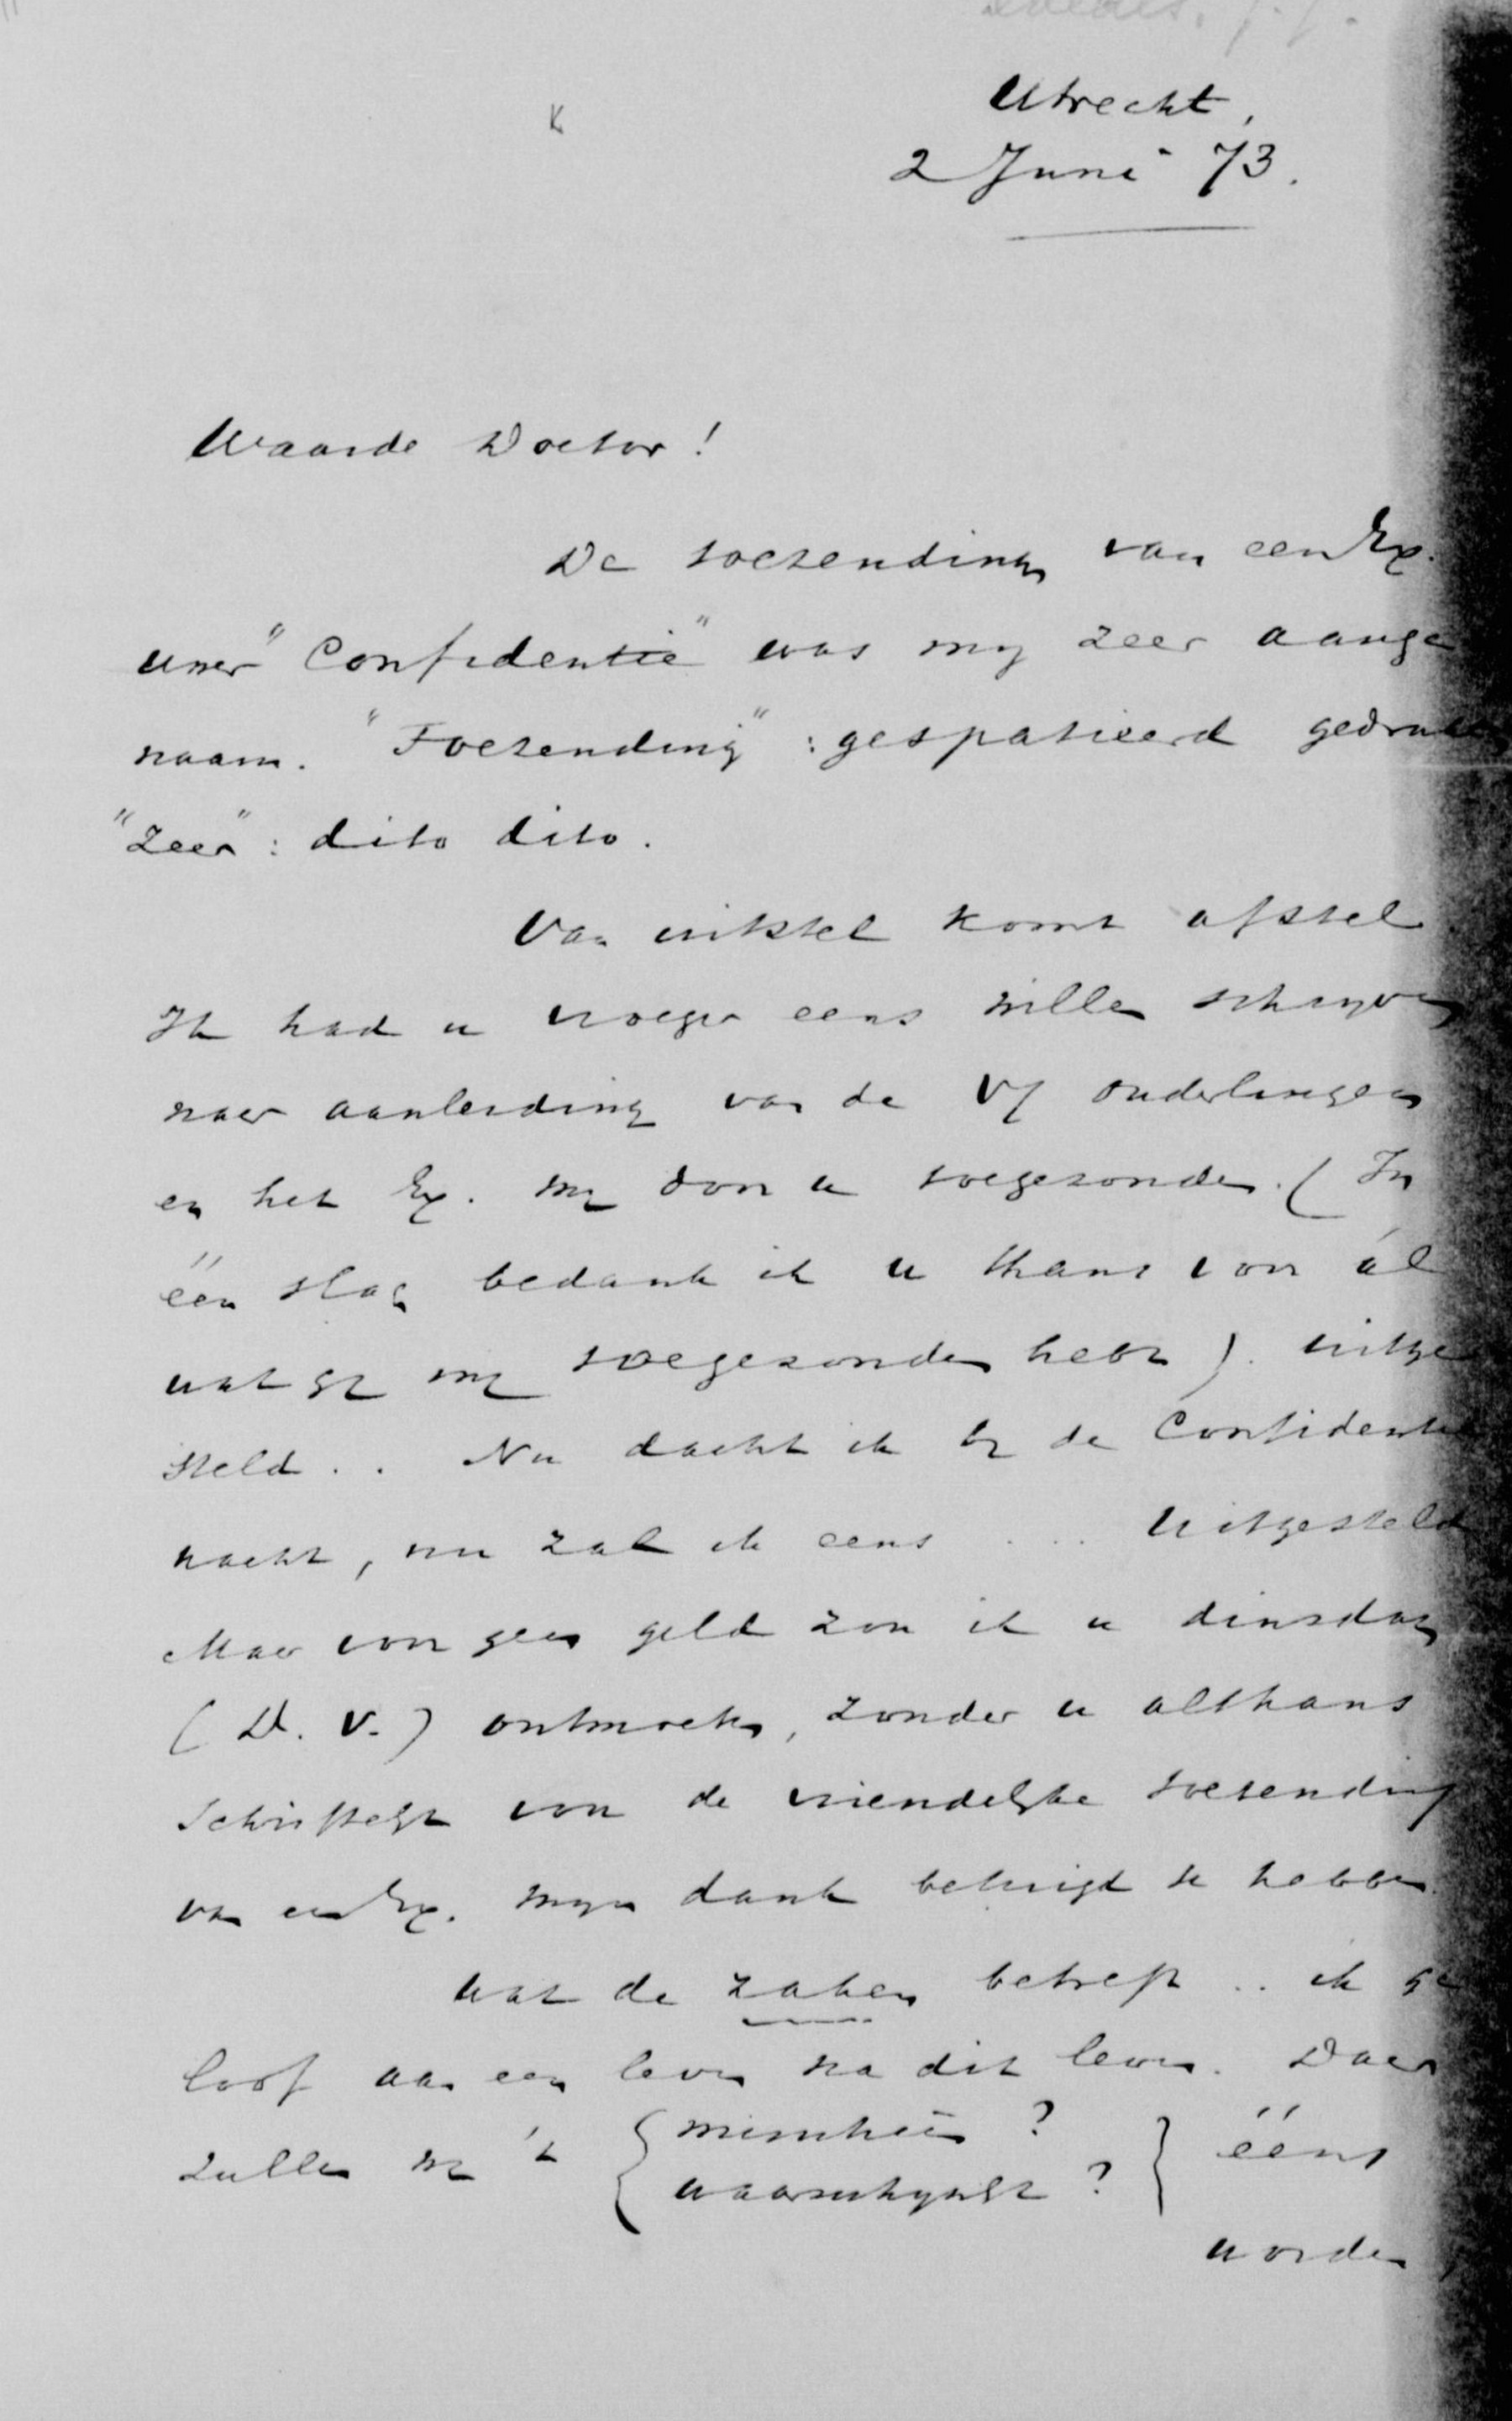 Utrecht,
2 Juni 73.
Waarde Doctor!
De toezending van een Ex.
uwer "Confidentie" was my zeer aange
naam. "Toezending": gespatieerd gedrukt
"zeer": dito dito.
Van uitstel komt afstel
Ik had u vroeger eens willen schryven
naar aanleiding van de Vyf ouderlingen
en het Ex. my door u toegezonden. (In
één slag bedank ik u thans voor ál
wat gy my toegezonden hebt). uitge
steld.. Nu dacht ik by de Confidentie
nacht, nu zal ik eens .... uitgesteld
Maar voor geen geld zou ik u dinsdag
(D. V.) ontmoeten, zonder u althans
schriftelyk voor de vriendelyke toezending
van een Ex. myn dank betuigd te hebben.
Wat de zaken betreft .. ik ge
loof aan een leven na dit leven. Daar
zullen we 't { misschien ?
waarschynlyk ? } ééns
worden,